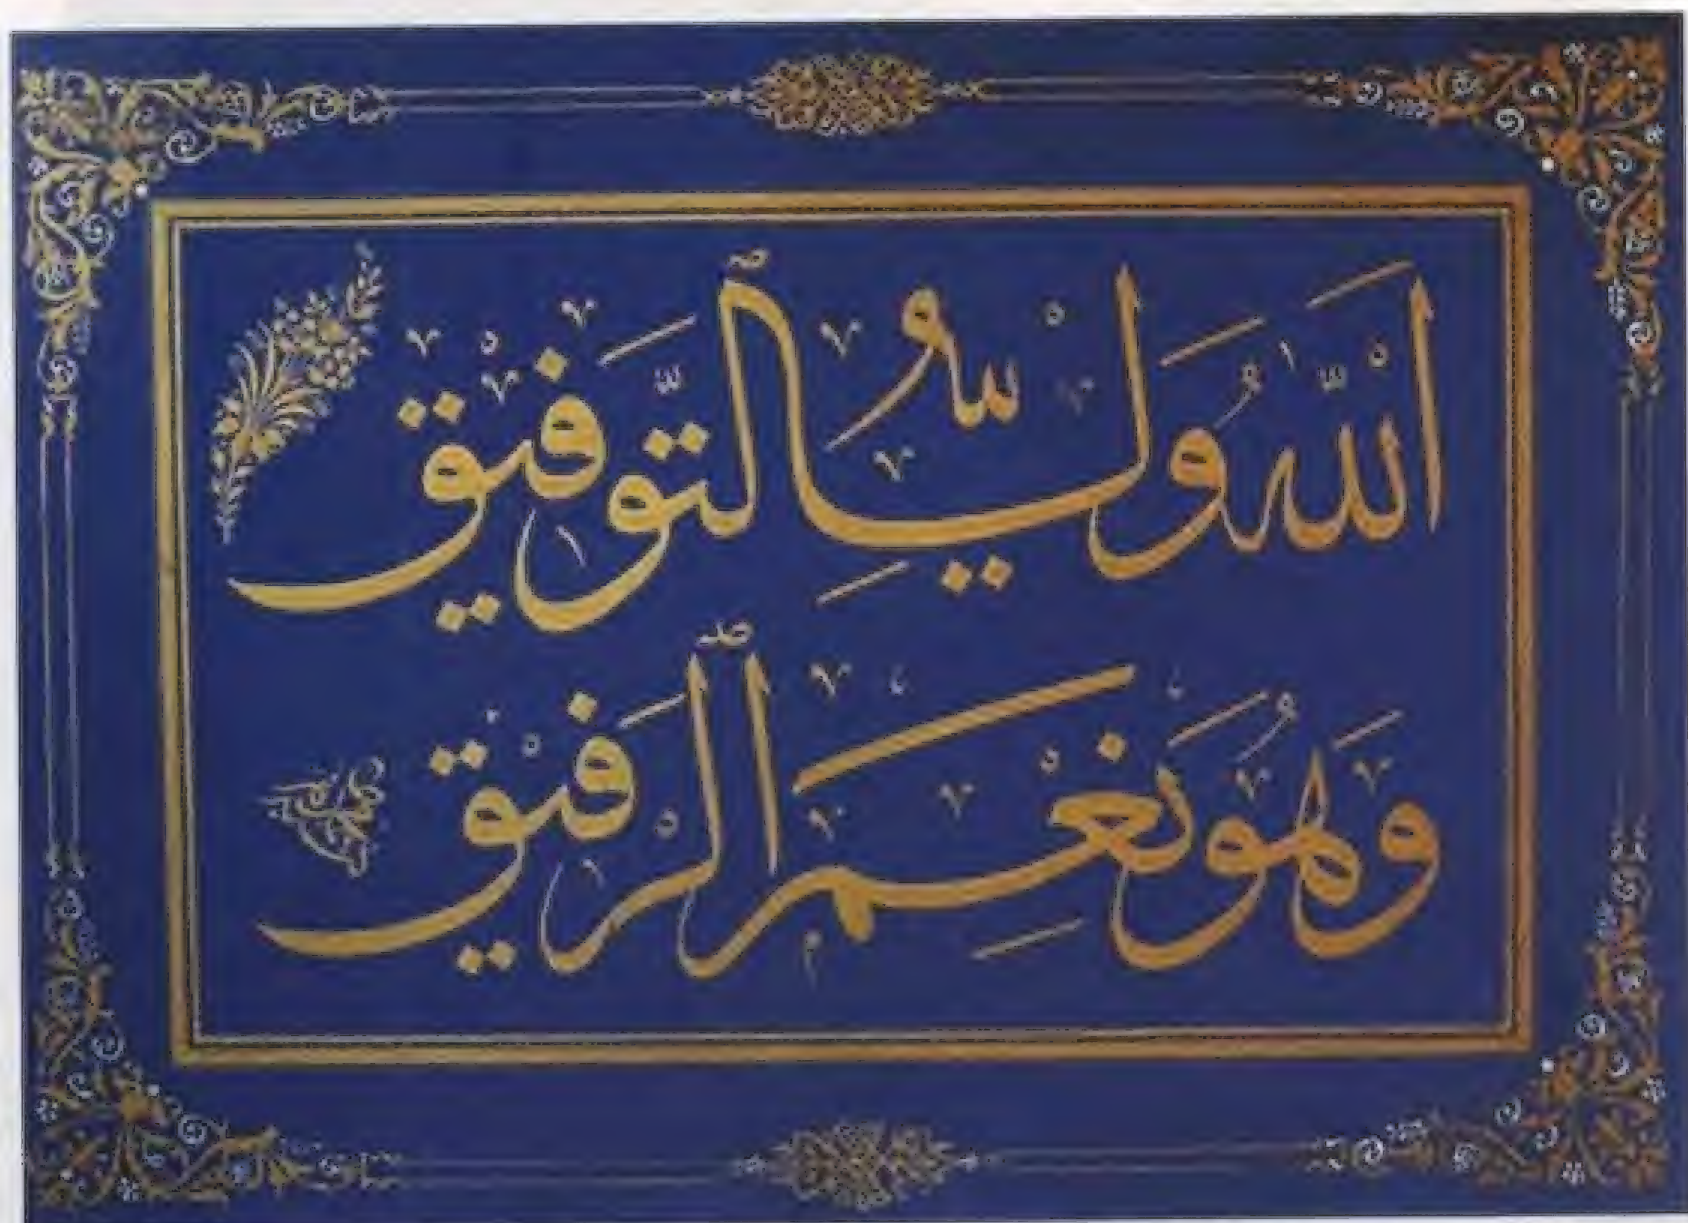 اَللّٰهُ وَلِيُّ التَّوْفِيقِ
وَهُوَ نِعْمَ الرَّفِيقُ